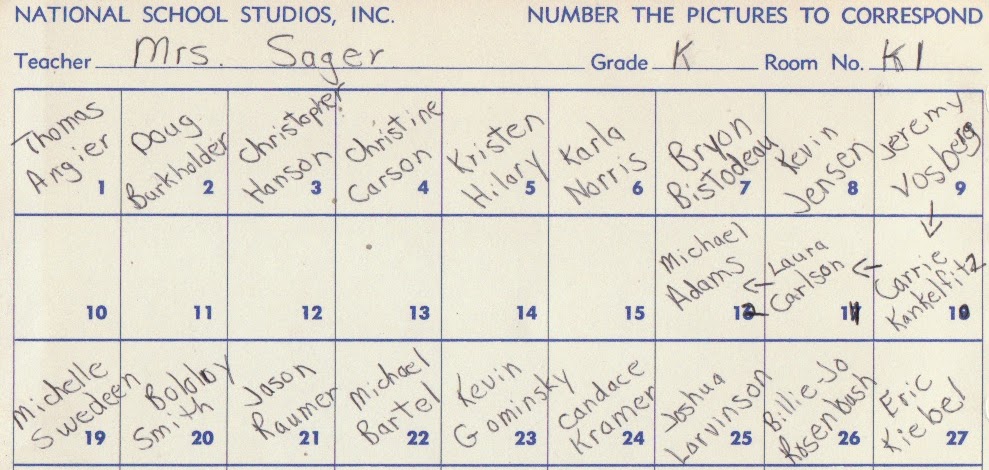 NATIONAL SCHOOL STUDIOS, INC. NUMBER THE PICTURES TO CORRESPOND
Teacher Mrs. Sager Grade K Room No. K1
Thomas Angier 1
Doug Burkholder 2
Christopher Hanson 3
Christine Carson 4
Kristen Hilary 5
Karla Norris 6
Bryon Bistodeau 7
Kevin Jensen 8
Jeremy Vosberg 9
10
11
12
13
14
15
Michael Adams 12
Laura Carlson 11
Carrie Kankelfitz 10
Michelle Swedeen 19
Bobby Smith 20
Jason Raumer 21
Michael Bartel 22
Kevin Gominsky 23
Candace Kramer 24
Joshua Larvinson 25
Billie-Jo Rosenbush 26
Eric Kiebel 27